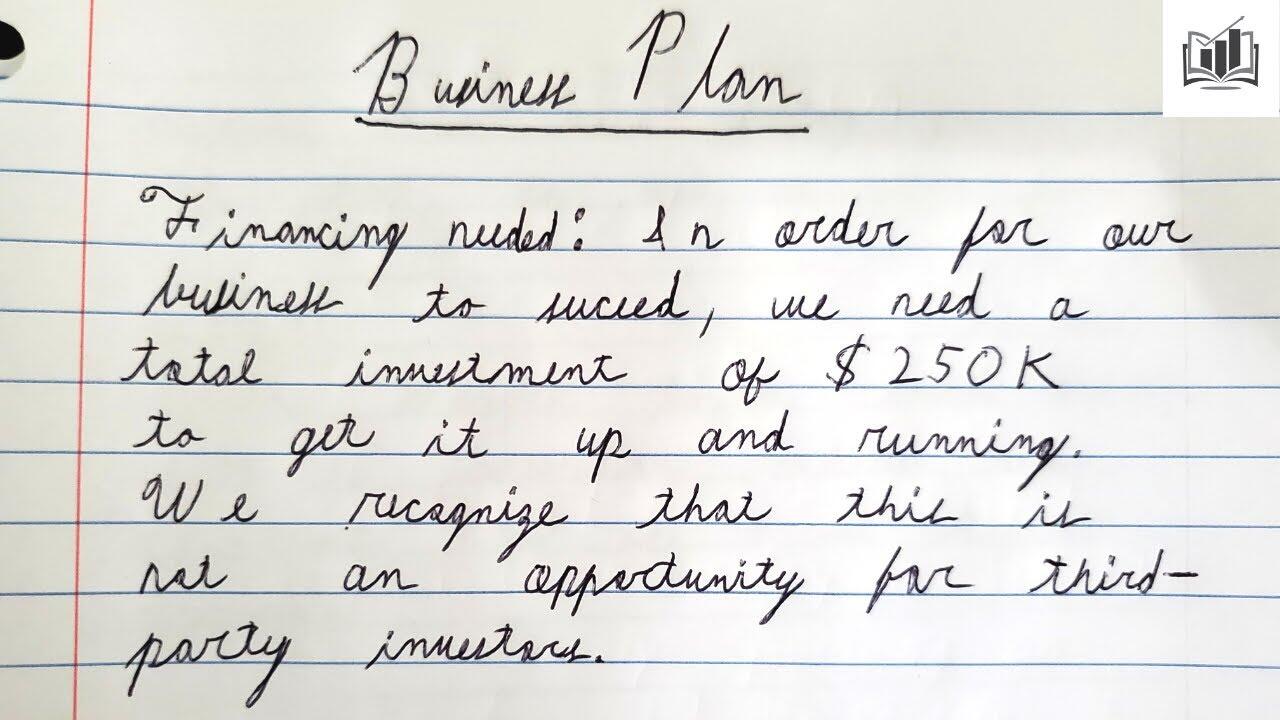 Business Plan
Financing needed: In order for our
business to suceed, we need a
total investment of $250K
to get it up and running.
We recognize that this is
not an opportunity for third-
party investors.